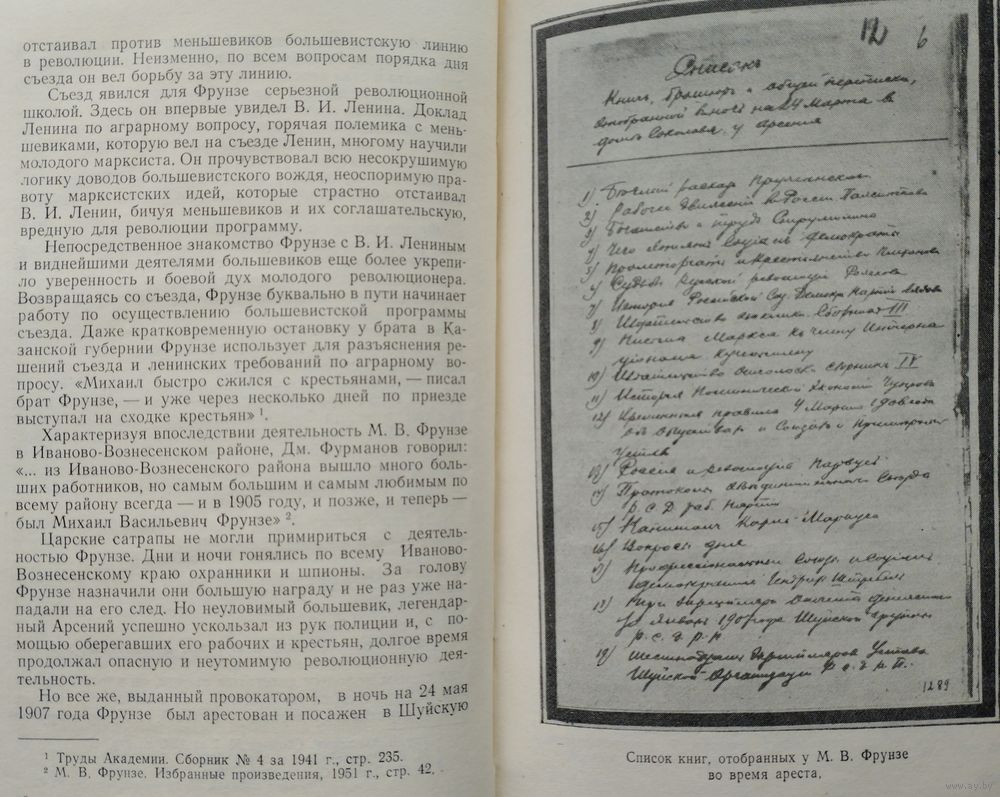 отстаивал против меньшевиков большевистскую линию
в революции. Неизменно, по всем вопросам порядка дня
съезда он вел борьбу за эту линию.
Съезд явился для Фрунзе серьезной революционной
школой. Здесь он впервые увидел В. И. Ленина. Доклад
Ленина по аграрному вопросу, горячая полемика с мень-
шевиками, которую вел на съезде Ленин, многому научили
молодого марксиста. Он прочувствовал всю несокрушимую
логику доводов большевистского вождя, неоспоримую пра-
воту марксистских идей, которые страстно отстаивал
В. И. Ленин, бичуя меньшевиков и их соглашательскую,
вредную для революции программу.
Непосредственное знакомство Фрунзе с В. И. Лениным
и виднейшими деятелями большевиков еще более укрепи-
ло уверенность и боевой дух молодого революционера.
Возвращаясь со съезда, Фрунзе буквально в пути начинает
работу по осуществлению большевистской программы
съезда. Даже кратковременную остановку у брата в Ка-
занской губернии Фрунзе использует для разъяснения ре-
шений съезда и ленинских требований по аграрному во-
просу. «Михаил быстро сжился с крестьянами, — писал
брат Фрунзе, — и уже через несколько дней по приезде
выступал на сходке крестьян» ¹.
Характеризуя впоследствии деятельность М. В. Фрунзе
в Иваново-Вознесенском районе, Дм. Фурманов говорил:
«... из Иваново-Вознесенского района вышло много боль-
ших работников, но самым большим и самым любимым по
всему району всегда — и в 1905 году, и позже, и теперь —
был Михаил Васильевич Фрунзе» ².
Царские сатрапы не могли примириться с деятель-
ностью Фрунзе. Дни и ночи гонялись по всему Иваново-
Вознесенскому краю охранники и шпионы. За голову
Фрунзе назначили они большую награду и не раз уже на-
падали на его след. Но неуловимый большевик, легендар-
ный Арсений успешно ускользал из рук полиции и, с по-
мощью оберегавших его рабочих и крестьян, долгое время
продолжал опасную и неутомимую революционную дея-
тельность.
Но все же, выданный провокатором, в ночь на 24 мая
1907 года Фрунзе был арестован и посажен в Шуйскую
¹ Труды Академии. Сборник № 4 за 1941 г., стр. 235.
² М. В. Фрунзе. Избранные произведения, 1951 г., стр. 42.
12 6
Список
Книг, брошюр и общей переписки,
отобранной в ночь на 24 Марта в
доме Соколова у Арсения
1)
2) Рабочее движение в России
3) Богатство и труд
4) Чего Социал демократы
5) Пролетариат и крестьянство
6) Судьбы Русской революции
7) История Российской Соц. Демокр. Партии
8) Сборник III
9) Письма Маркса к члену Интерна
ционала Кугельману
10) сборник IV
11) История Политической Экономии
12) Временные правила 4 Марта 1906 года
об обществах и Союзах
13) Россия и революция Парвус
14) Протоколы объединительного Съезда
Р. С. Д. раб. Партии
15) Капитал Карл Маркса
16) Вопросы дня
17) Профессиональные Союзы и
18) экземпляр отчета
за Январь 1907 года Шуйской группы
Р. С. Д. Р. П.
19) экземпляров Устава
Шуйской Организации Р. С. Д. Р. П.
1289
Список книг, отобранных у М. В. Фрунзе
во время ареста.
www.ay.by